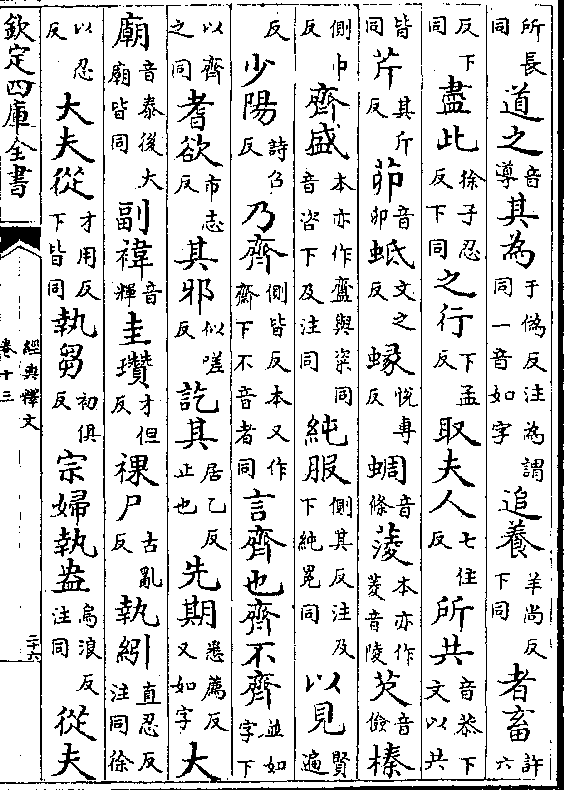 所長同道之音導其為于偽反注為謂同一音如字追養羊尚反下同者畜許六
反下同盡此徐子忍反下同之行下孟反取夫人七住反所共音恭下文以共
皆同芹其斤反茆音卯蚳文之反蝝悅專反蜩音條蔆本亦作菱音陵芡音儉榛
側巾反齊盛本亦作齍與粢同音咨下及注同純服側其反注及下純冕同以見賢遍
反少陽詩召反乃齊側皆反本又作齋下不音者同言齊也齊不齊並如字下
以齊之同耆欲市志反其邪似嗟反訖其居乙反止也先期悉薦反又如字大
廟音泰後大廟皆同副褘音輝圭瓚才但反祼尸古亂反執紖直忍反注同徐
以忍反大夫從才用反下皆同執芻初俱反宗婦執盎烏浪反注同從夫
欽定四庫全書
經典釋文
卷十三
二十六